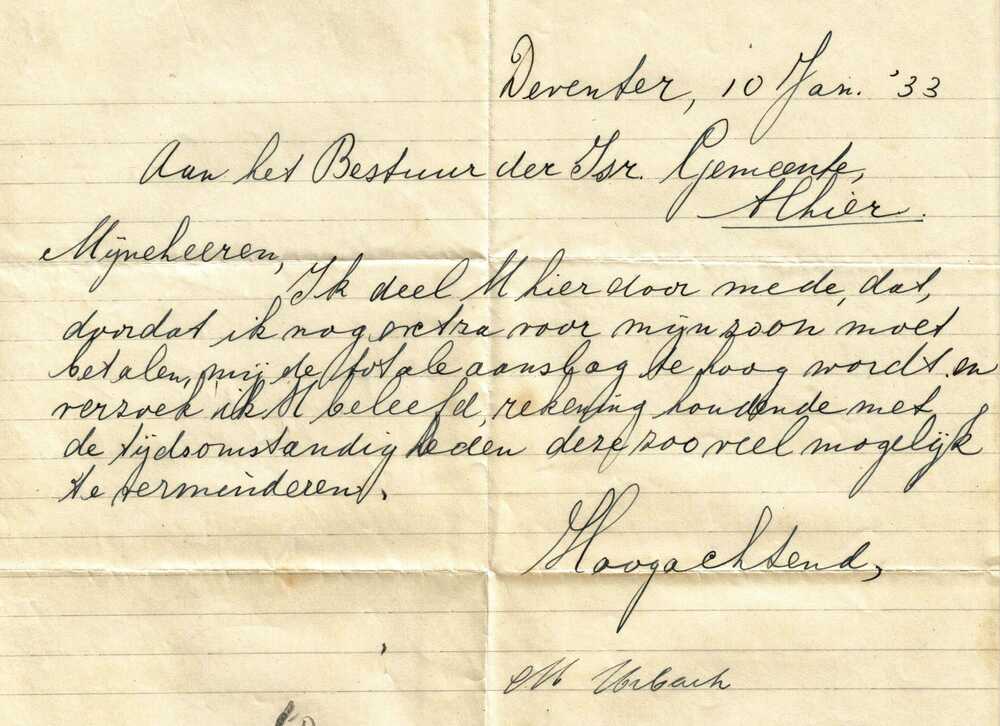 Deventer, 10 Jan. '33
Aan het Bestuur der Isr. Gemeente,
Alhier.
Mijneheeren,
Ik deel U hierdoor mede, dat,
doordat ik nog extra voor mijn zoon moet
betalen, mij de totale aanslag te hoog wordt en
verzoek ik U beleefd, rekening houdende met
de tijdsomstandigheden deze zoo veel mogelijk
te verminderen.
Hoogachtend,
M Urbach